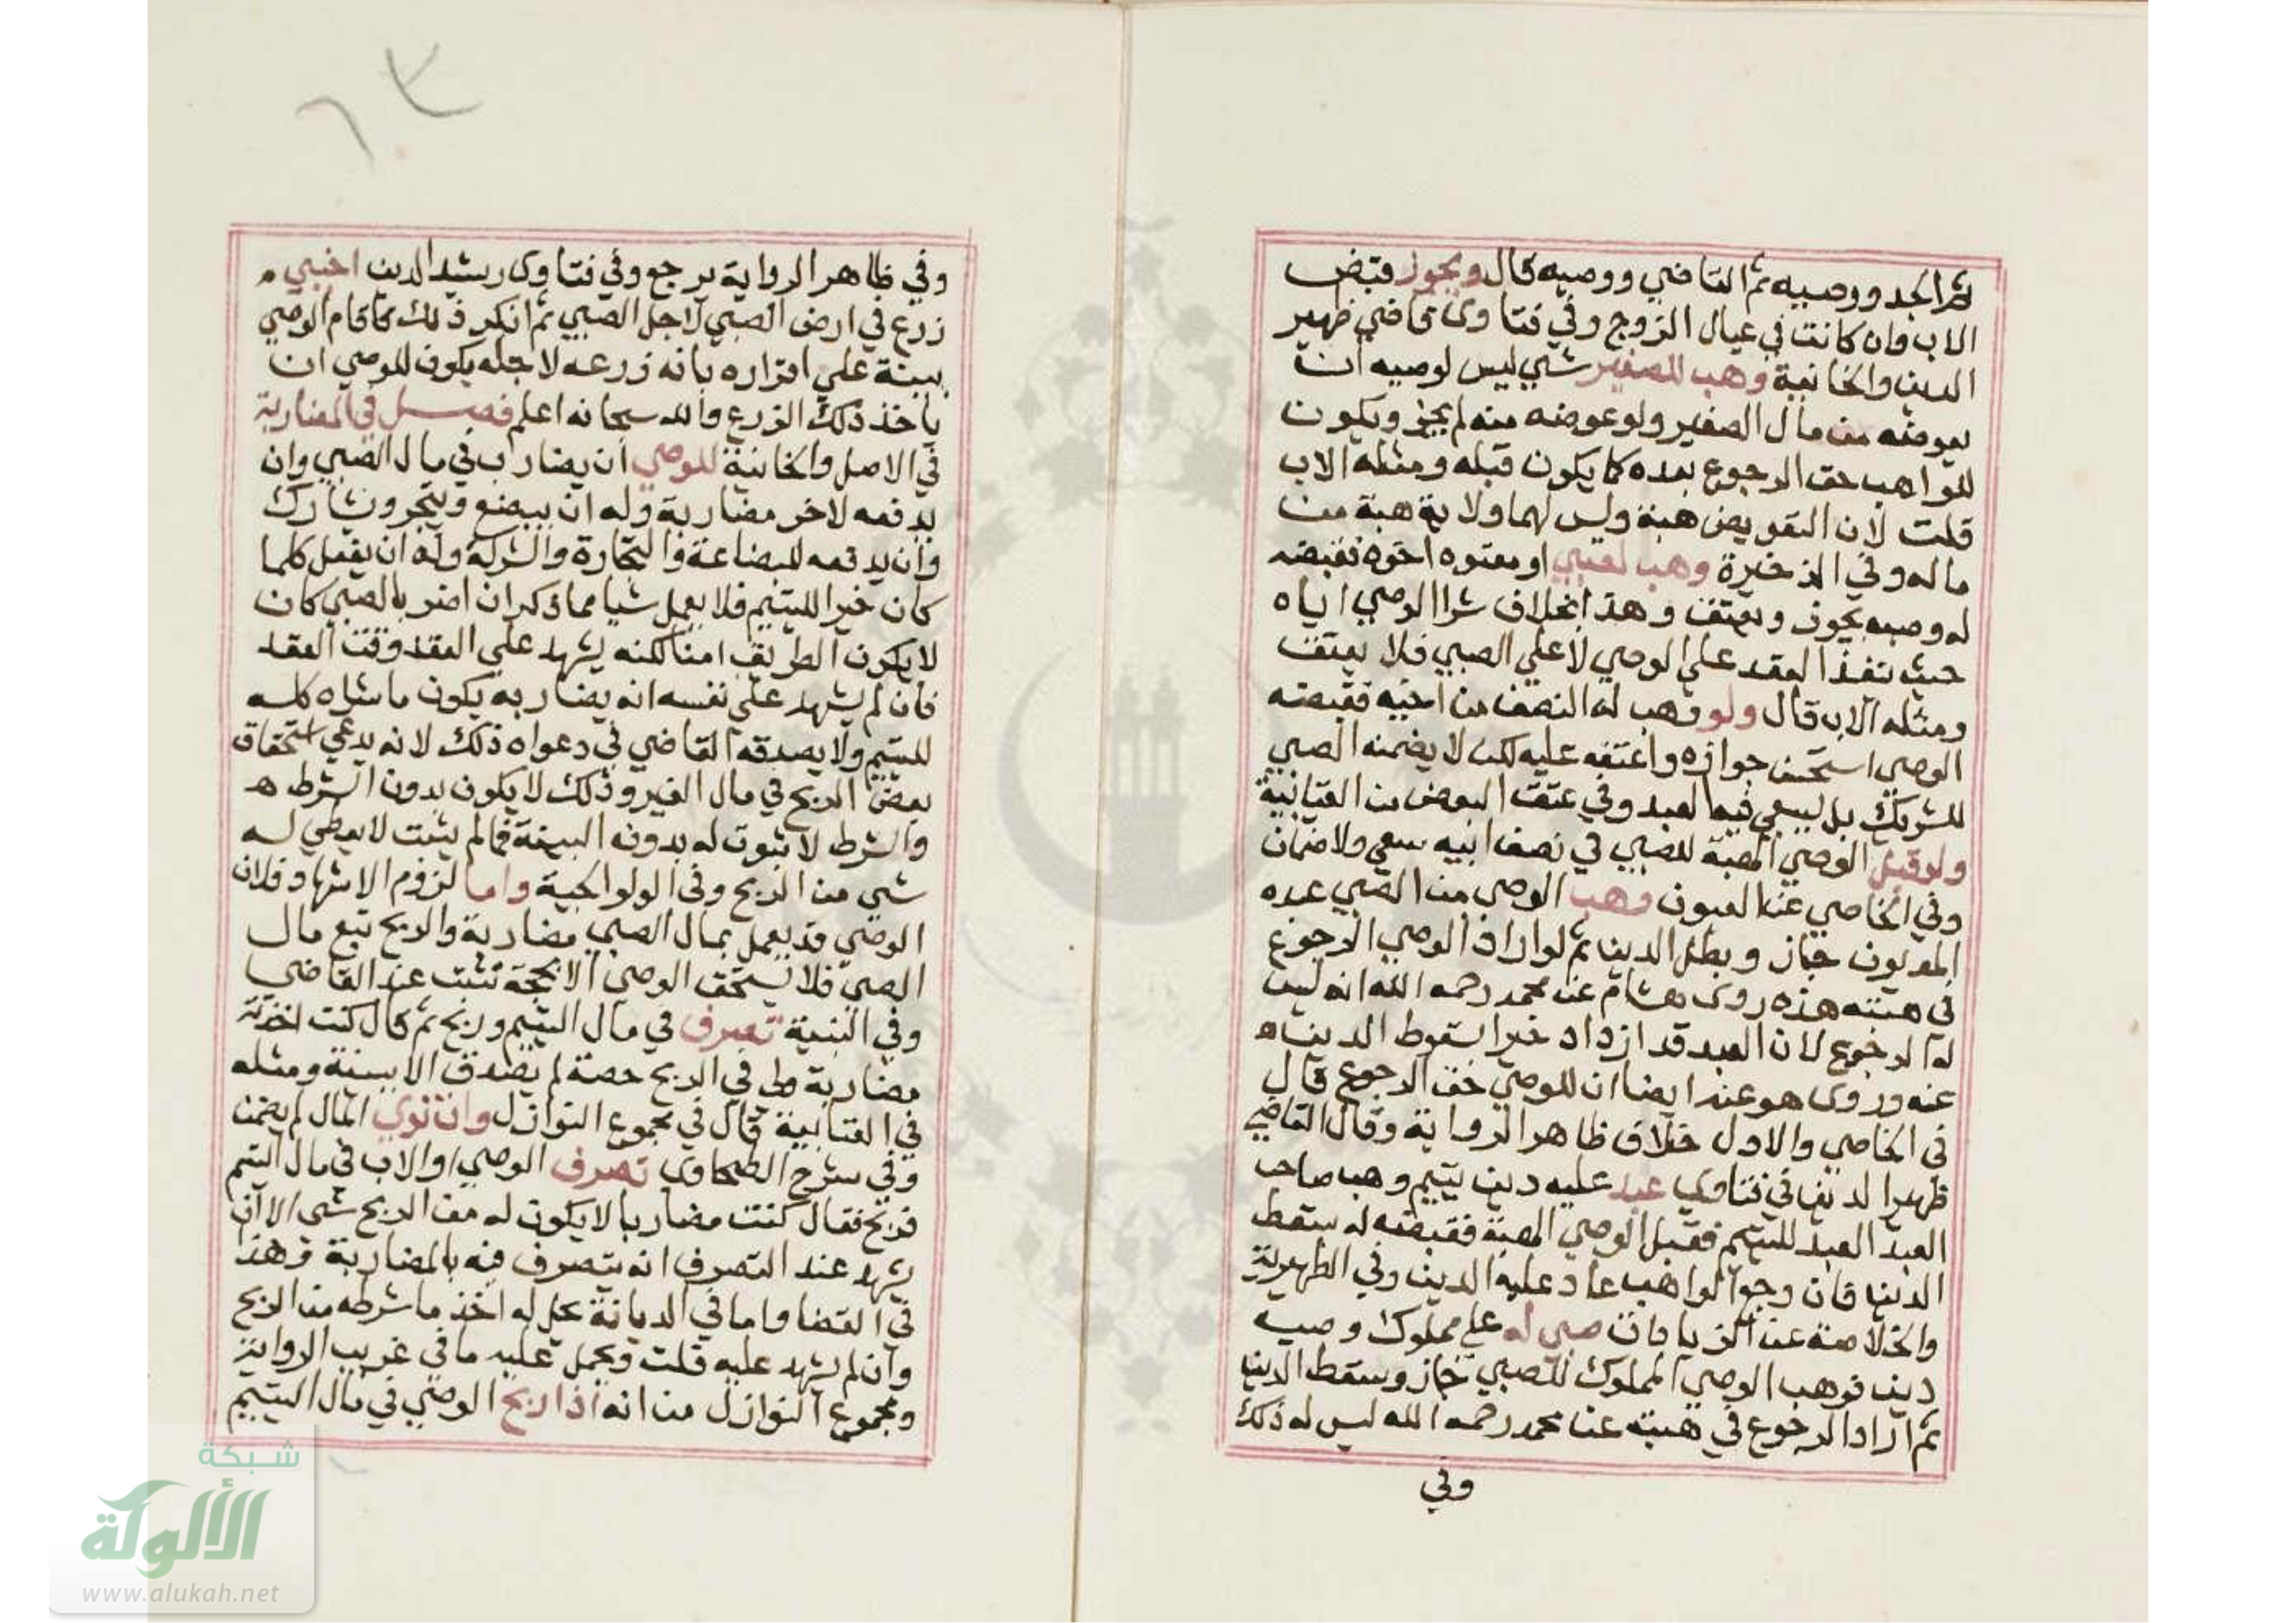 ثم الجد ووصيه ثم القاضي ووصيه قال ويجوز قبض
الاب وان كانت في عيال الزوج وفي فتاوى قاضي ظهير
الدين والخانية وهب للصغير شي ليس لوصيه ان
يعوضه من مال الصغير ولو عوضه منه لم يجز ويكون
للواهب حق الرجوع بعده كما يكون قبله ومثله الاب
قلت لان التعويض هبة وليس لهما ولاية هبة من
ماله وفي الذخيرة وهب لصبي او معتوه اخوه فقبضه
له وصيه يجوز ويعتق وهذا بخلاف شرا الوصي اياه
حيث ينفذ العقد على الوصي لا علي الصبي فلا يعتق
ومثله الاب قال ولو وهب له النصف من اخيه فقبضه
الوصي استحسن جوازه واعتقه عليه لكن لا يضمنه الصبي
للشريك بل يسعي فيه العبد وفي عتق البعض من العتابية
ولو قبل الوصي الهبة للصبي في نصف ابيه سعي ولا ضمان
وفي الخاصي عن العيون وهب الوصي من الصبي عبده
المديون جاز وبطل الدين ثم لو اراد الوصي الرجوع
في هبته هذه روى هشام عن محمد رحمه الله انه ليس
له الرجوع لان العبد قد ازداد خيرا بسقوط الدين
عنه وروى هو عنه ايضا ان للوصي حق الرجوع قال
في الخاصي والاول خلاف ظاهر الرواية وقال القاضي
ظهير الدين في فتاويه عبد عليه دين يتيم وهب صاحب
العبد العبد لليتيم فقبل الوصي الهبة فقبضه له سقط
الدين فان رجع الواهب عاد عليه الدين وفي الظهيرية
والخلاصة عن الزيادات صبي له علي مملوك وصيه
دين فوهب الوصي المملوك للصبي جاز وسقط الدين
ثم اراد الرجوع في هبته عن محمد رحمه الله ليس له ذلك
وفي
٦٣
وفي ظاهر الرواية يرجع وفي فتاوى رشيد الدين اجنبي
زرع في ارض الصبي لاجل الصبي ثم انكر ذلك فاقام الوصي
بينة علي اقراره بانه زرعه لاجله يكون للوصي ان
ياخذ ذلك الزرع والله سبحانه اعلم فصل في المضاربة
في الاصل والخانية للوصي ان يضارب في مال الصبي وان
يدفعه لاخر مضاربة وله ان يبضع ويتجر ويشارك
وان يدفعه للبضاعة والتجارة والشركة وله ان يفعل كلما
كان خيرا لليتيم فلا يعمل شيا مما ذكر ان اضر بالصبي كان
لا يكون الطريق امنا لكنه يشهد علي العقد وقت العقد
فان لم يشهد علي نفسه انه يضارب به يكون ما شراه كله
لليتيم ولا يصدقه القاضي في دعواه ذلك لانه يدعي استحقاق
بعض الربح في مال الغير وذلك لا يكون بدون الشرط
والشرط لا ثبوت له بدون البينة فما لم يثبت لا يعطي له
شي من الربح وفي الولوالجية واما لزوم الاشهاد فلان
الوصي قد يعمل بمال الصبي مضاربة والربح تبع مال
الصبي فلا يستحق الوصي الا بحجة تثبت عند القاضي
وفي القنية تصرف في مال اليتيم وربح ثم قال كنت اخذته
مضاربة ولي في الربح حصة لم يصدق الا ببينة ومثله
في العتابية قال في مجموع النوازل وان توي المال لم يضمن
وفي شرح الطحاوى تصرف الوصي او الاب في مال اليتيم
فربح فقال كنت مضاربا لا يكون له من الربح شي الا ان
يشهد عند التصرف انه يتصرف فيه بالمضاربة وهذا
في القضا واما في الديانة يحل له اخذ ما شرطه من الربح
وان لم يشهد عليه قلت ويحمل عليه ما في غريب الرواية
ومجموع النوازل من انه اذا ربح الوصي في مال اليتيم
شبكة
الألوكة
www.alukah.net